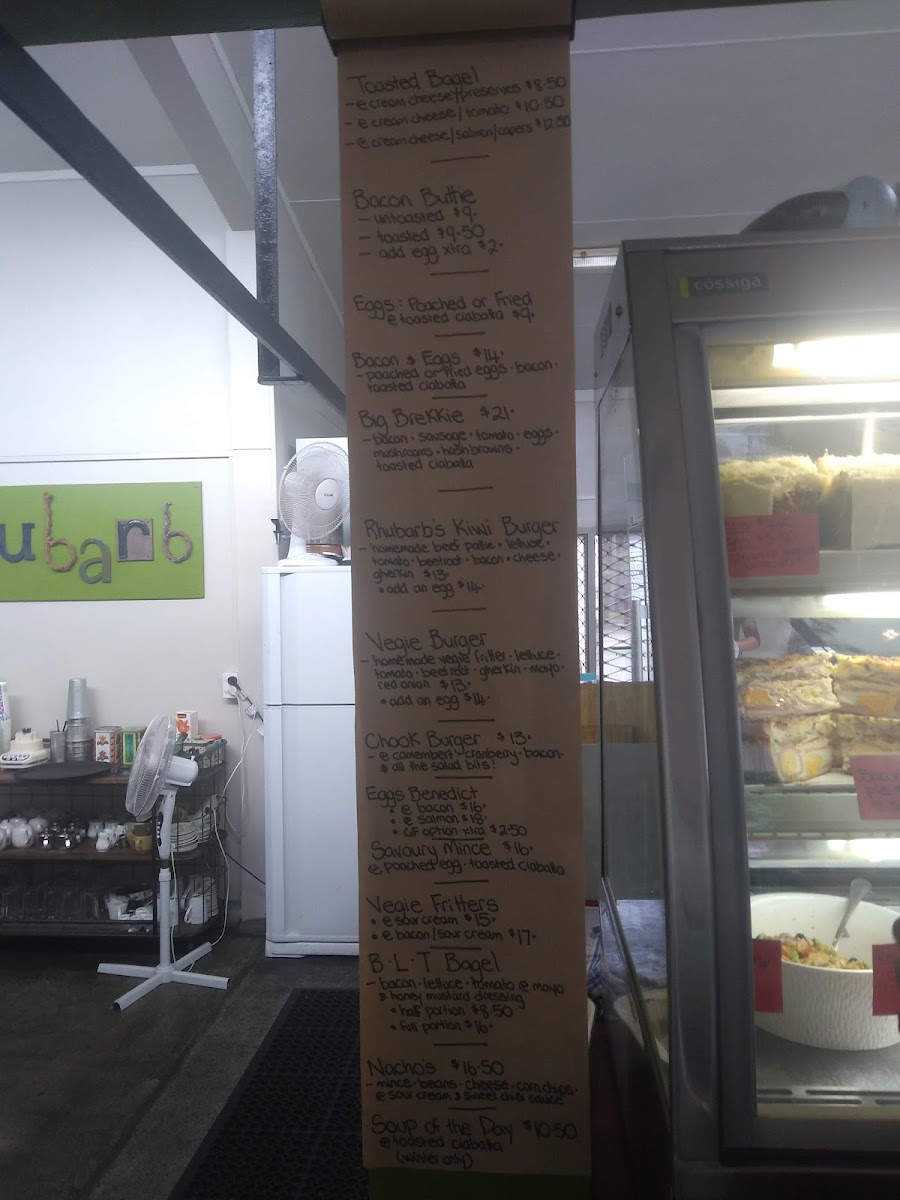 Toasted Bagel
- @ cream cheese/preserves $8.50
- @ cream cheese/tomato $10.50
- @ cream cheese/salmon/capers $12.50
Bacon Buttie
- untoasted $9.
- toasted $9.50
- add egg xtra $2.
Eggs: Poached or Fried
@ toasted ciabatta $9.
Bacon & Eggs $14.
- poached or fried eggs. bacon.
toasted ciabatta
Big Brekkie $21.
- bacon. sausage. tomato. eggs.
mushrooms. hashbrowns.
toasted ciabatta
Rhubarb's Kiwi Burger
- homemade beef pattie. lettuce.
tomato. beetroot. bacon. cheese.
gherkin $13.
• add an egg $14.
Vegie Burger
- homemade vegie fritter. lettuce.
tomato. beetroot. gherkin. mayo.
red onion $13.
• add an egg $14.
Chook Burger $13.
- @ camembert. cranberry. bacon.
& all the salad bits!
Eggs Benedict
• @ bacon $16.
• @ salmon $18.
• GF option xtra $2.50
Savoury Mince $16.
@ poached egg. toasted ciabatta
Vegie Fritters
• @ sour cream $15.
• @ bacon/sour cream $17.
B.L.T Bagel
- bacon. lettuce. tomato @ mayo
& honey mustard dressing
• half portion $8.50
• full portion $16.
Nacho's $16.50
- mince. beans. cheese. corn chips.
@ sour cream & sweet chilli sauce
Soup of the Day $10.50
@ toasted ciabatta
(winter only)
cossiga
ubarb